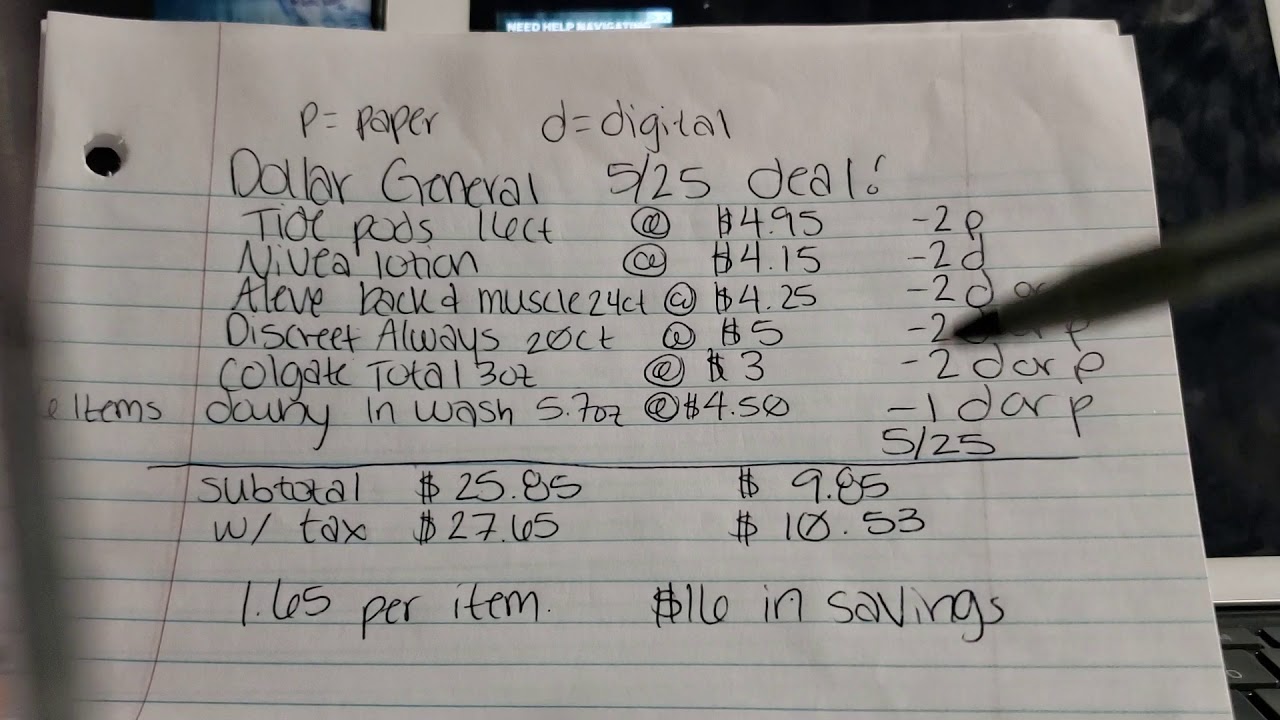 NEED HELP NAVIGATING
p = paper d = digital
Dollar General 5/25 deal!
Tide pods 16ct @ $4.95 -2 p
Nivea lotion @ $4.15 -2 d
Aleve back & muscle 24ct @ $4.25 -2 d or
Discreet Always 20ct @ $5 -2 d or p
Colgate Total 3oz @ $3 -2 d or p
Items dawny In wash 5.7oz @ $4.50 -1 d or p
5/25
subtotal $ 25.85 $ 9.85
w/ tax $ 27.65 $ 10.53
1.65 per item. $16 in savings